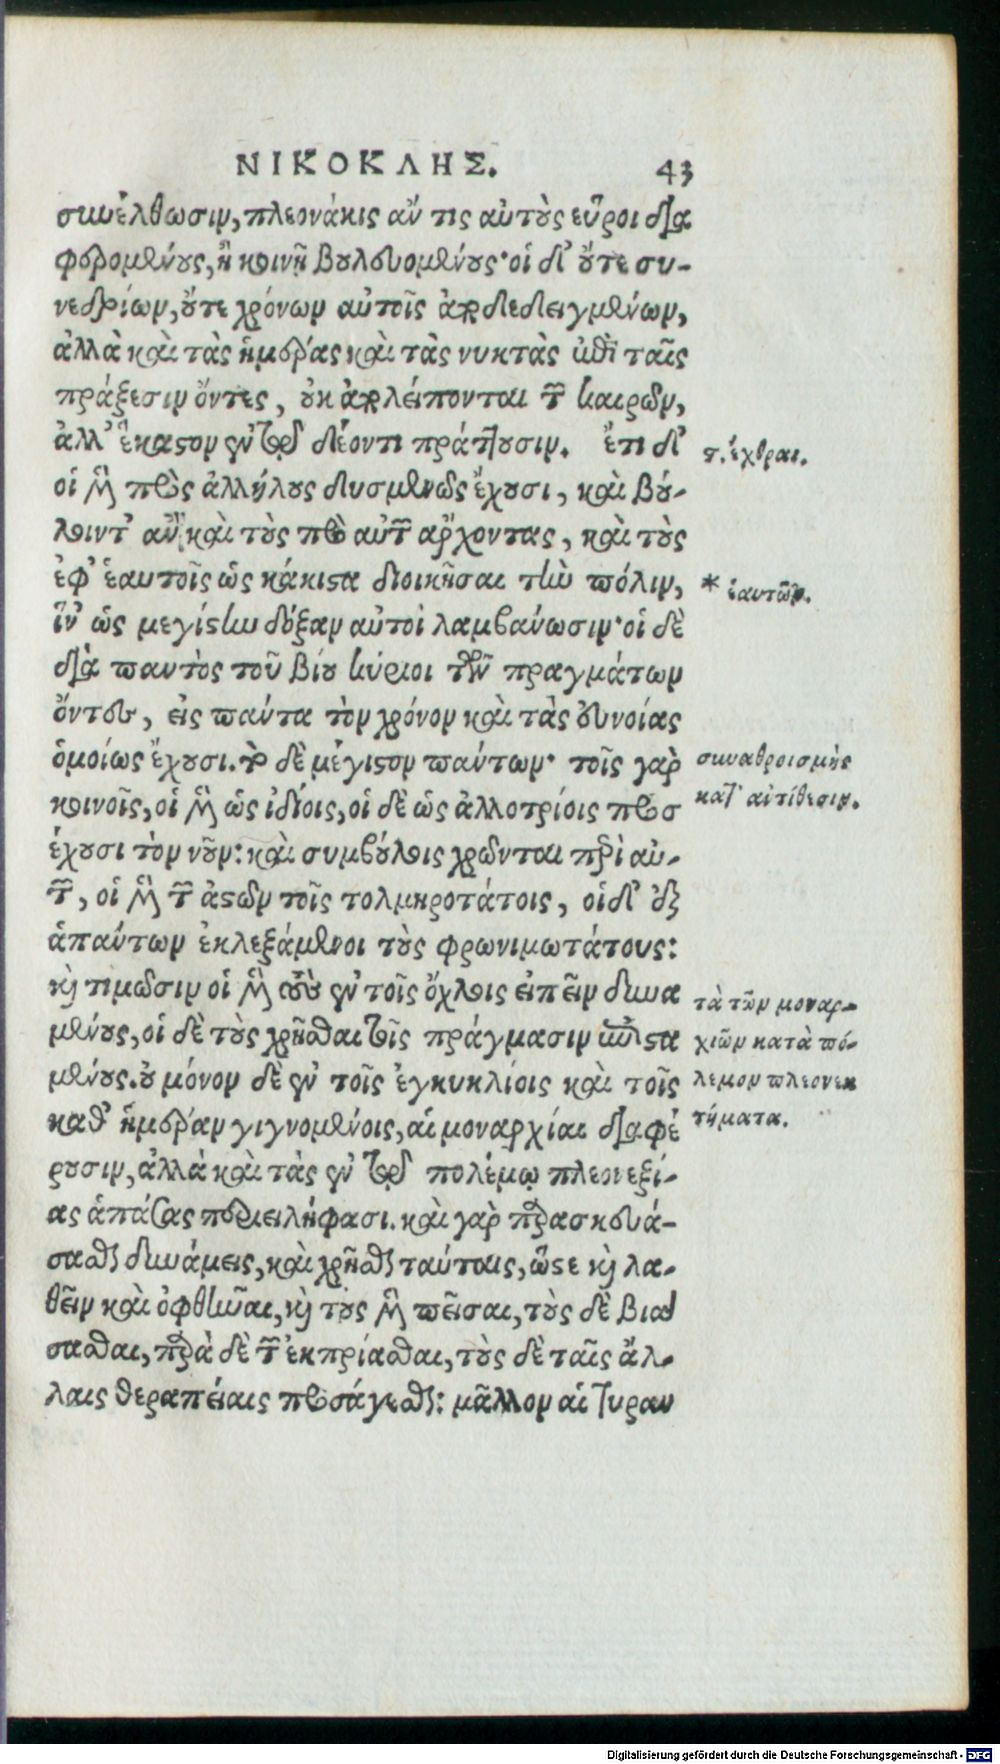 ΝΙΚΟΚΛΗΣ. 43
συνέλθωσιν, πλεονάκις ἄν τις αὐτοὺς εὕροι δια
φερομένους, ἢ κοινῇ βουλευομένους· οἱ δ' οὔτε συ-
νεδρίων, οὔτε χρόνων αὐτοῖς ἀποδεδειγμένων,
ἀλλὰ καὶ τὰς ἡμέρας καὶ τὰς νυκτὰς ἐπὶ ταῖς
πράξεσιν ὄντες, οὐκ ἀπολείπονται τῶν καιρῶν,
ἀλλ' ἕκαστον ἐν τῷ δέοντι πράττουσιν. ἔτι δ'
οἱ μὲν πρὸς ἀλλήλους δυσμενῶς ἔχουσι, καὶ βού-
λοιντ' ἂν καὶ τοὺς πρὸ αὐτῶν ἄρχοντας, καὶ τοὺς
ἐφ' ἑαυτοῖς ὡς κάκιστα διοικῆσαι τὴν πόλιν,
ἵν' ὡς μεγίστην δόξαν αὐτοὶ λαμβάνωσιν· οἱ δὲ
διὰ παντὸς τοῦ βίου κύριοι τῶν πραγμάτων
ὄντες, εἰς πάντα τὸν χρόνον καὶ τὰς εὐνοίας
ὁμοίως ἔχουσι. τὸ δὲ μέγιστον πάντων· τοῖς γὰρ
κοινοῖς, οἱ μὲν ὡς ἰδίοις, οἱ δὲ ὡς ἀλλοτρίοις προσ
έχουσι τὸν νοῦν: καὶ συμβούλοις χρῶνται περὶ αὐ-
τῶν, οἱ μὲν τῶν ἀστῶν τοῖς τολμηροτάτοις, οἱ δ' ἐξ
ἁπάντων ἐκλεξάμενοι τοὺς φρονιμωτάτους:
καὶ τιμῶσιν οἱ μὲν τοὺς ἐν τοῖς ὄχλοις εἰπεῖν δυνα
μένους, οἱ δὲ τοὺς χρῆσθαι τοῖς πράγμασιν ἐπιστα
μένους. οὐ μόνον δὲ ἐν τοῖς ἐγκυκλίοις καὶ τοῖς
καθ' ἡμέραν γιγνομένοις, αἱ μοναρχίαι διαφέ
ρουσιν, ἀλλὰ καὶ τὰς ἐν τῷ πολέμῳ πλεονεξί-
ας ἁπάσας περιειλήφασι. καὶ γὰρ παρασκευά-
σασθαι δυνάμεις, καὶ χρῆσθαι ταύταις, ὥστε καὶ λα-
θεῖν καὶ ὀφθῆναι, καὶ τοὺς μὲν πεῖσαι, τοὺς δὲ βιά
σασθαι, παρὰ δὲ τῶν ἐκπρίασθαι, τοὺς δὲ ταῖς ἄλ-
λαις θεραπείαις προσάγεσθαι: μᾶλλον αἱ τυραν
τ. ἔχθραι.
* ἑαυτῶν.
συναθροισμὸς
κατ' ἀντίθεσιν.
τὰ τῶν μοναρ-
χιῶν κατὰ πό-
λεμον πλεονεκ
τήματα.
Digitalisierung gefördert durch die Deutsche Forschungsgemeinschaft - DFG